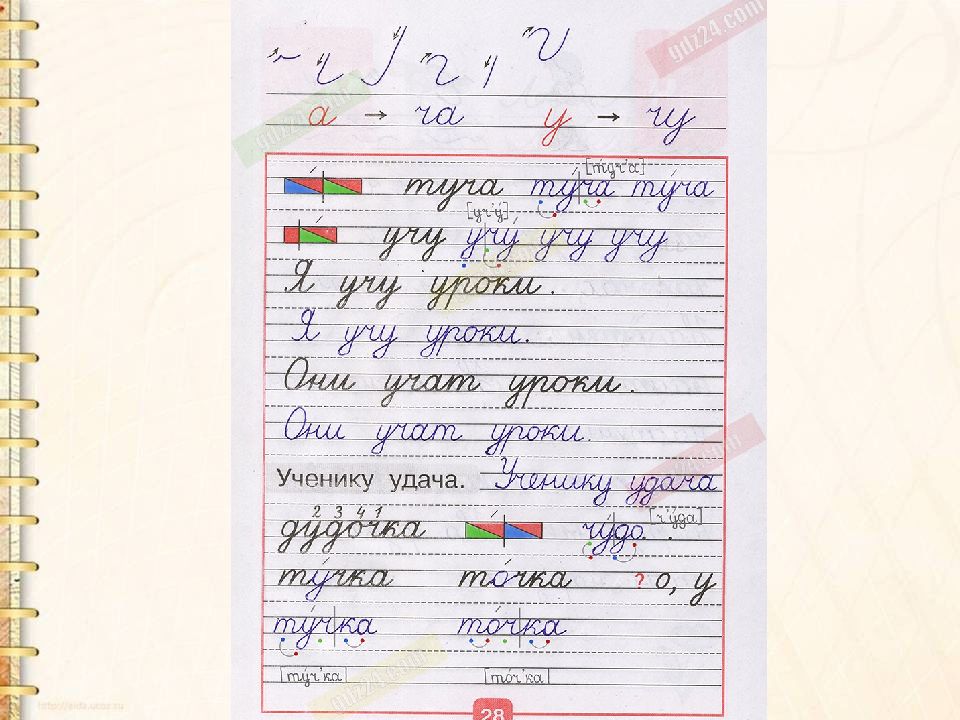 gdz24.com
а → ча у → чу
[туч'а]
туча ту́ча ту́ча
[уч'у́]
учу учу́ учу учу
Я учу уроки.
Я учу уроки.
Они учат уроки.
Они учат уроки.
Ученику удача. Ученику удача
2 3 4 1 [ч'у́да]
дудочка чу́до.
тучка точка ? о, у
ту́чка то́чка
[ту́ч'ка] [то́ч'ка]
gdz24.com
28
http://aida.ucoz.ru